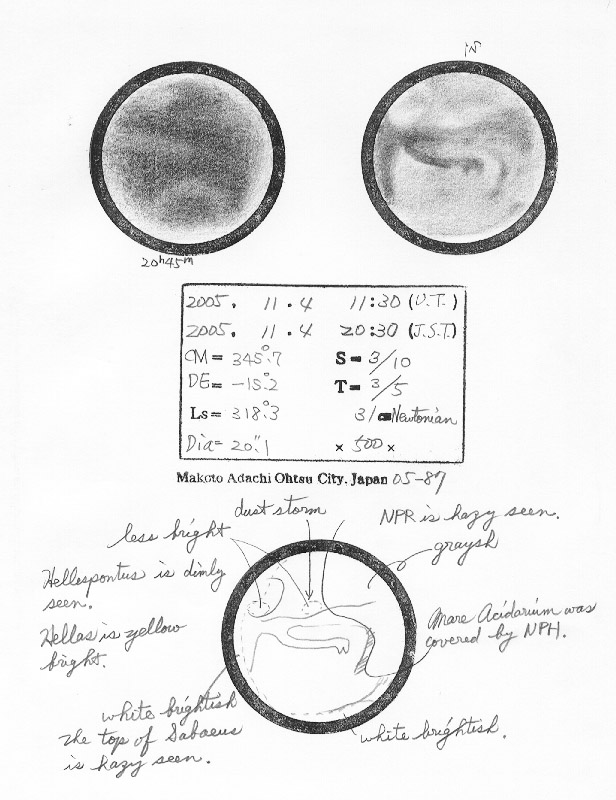 IN
20h45m
2005. 11.4 11:30 (U.T.)
2005. 11.4 20:30 (J.S.T)
CM= 345°.7 S= 3/10
DE= -15°.2 T= 3/5
Ls= 318°.3 31 Newtonian
Dia= 20".1 × 500 ×
Makoto Adachi Ohtsu City, Japan 05-87
dust storm
less bright
NPR is hazy seen.
graysh
Hellespontus is dimly
seen.
Hellas is yellow
bright.
Mare Acidarium was
covered by NPH.
white brightish
The top of Sabaeus
is hazy seen.
white brightish.